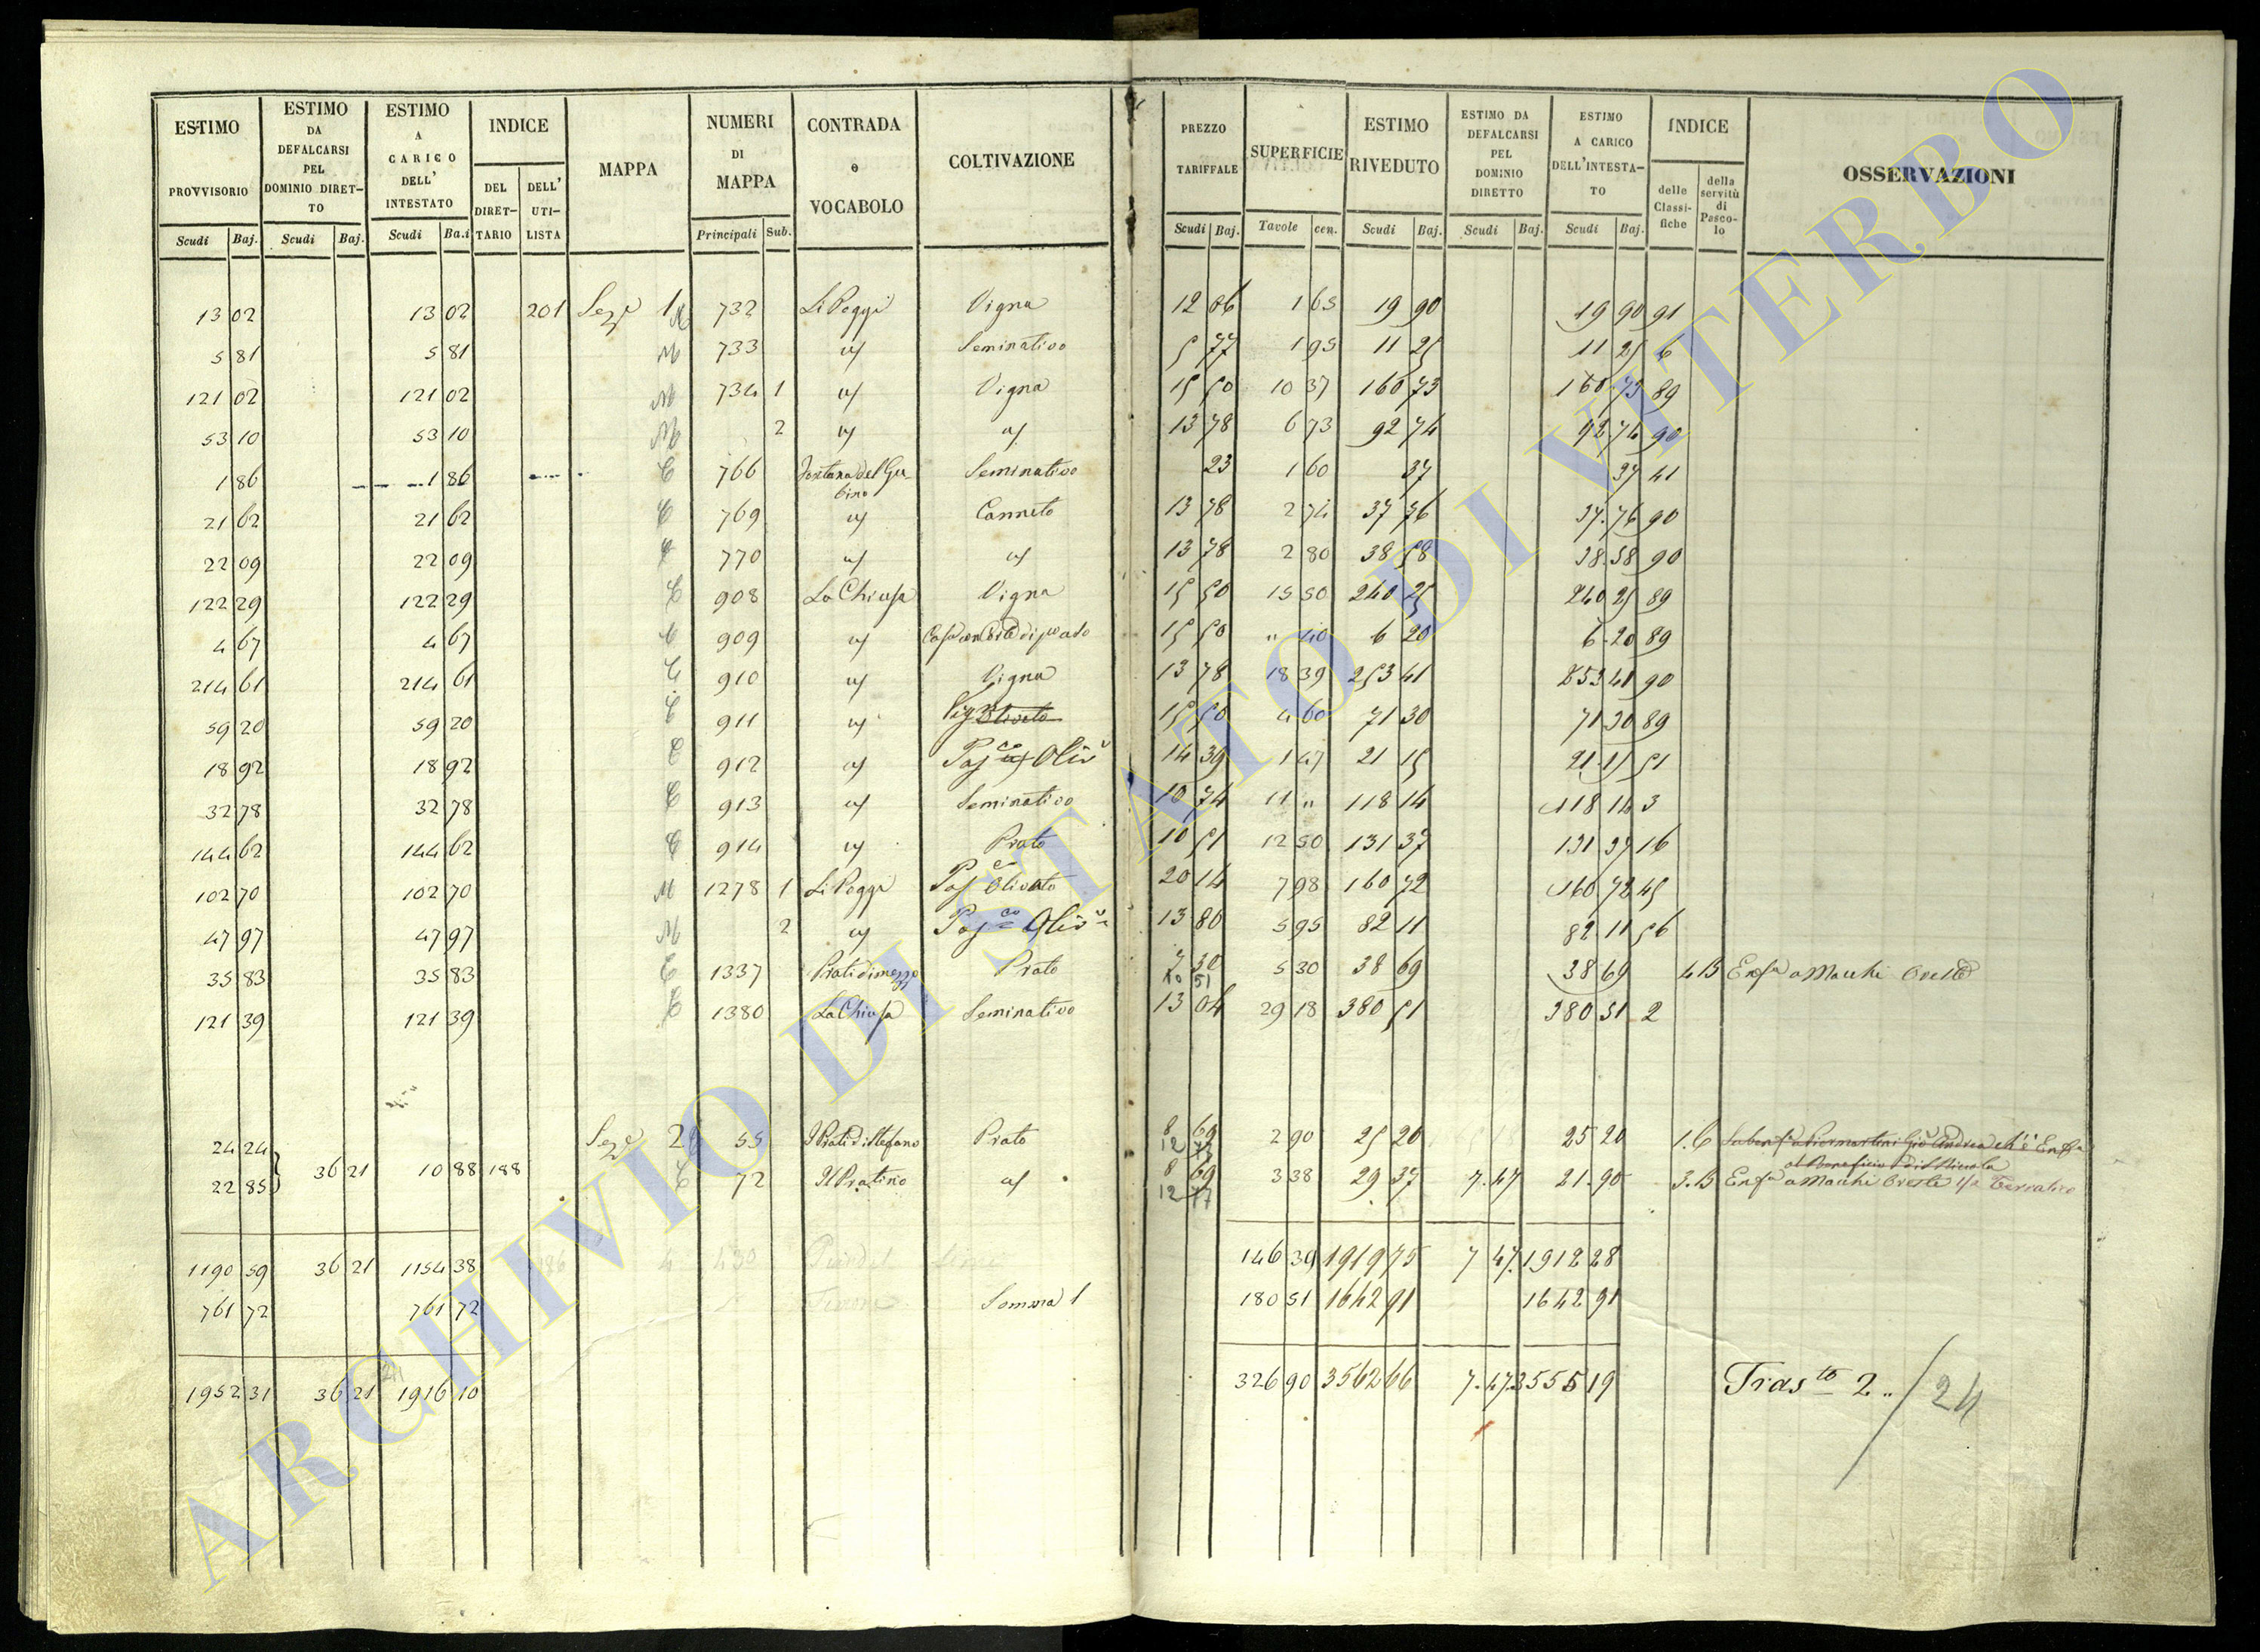 ESTIMO PROVVISORIO | ESTIMO DA DEFALCARSI PEL DOMINIO DIRETTO | ESTIMO A CARICO DELL' INTESTATO | INDICE DEL DIRETTARIO | DELL' UTILISTA | MAPPA | NUMERI DI MAPPA | CONTRADA o VOCABOLO | COLTIVAZIONE | PREZZO TARIFFALE | SUPERFICIE | ESTIMO RIVEDUTO | ESTIMO DA DEFALCARSI PEL DOMINIO DIRETTO | ESTIMO A CARICO DELL'INTESTATO | INDICE delle Classifiche | della servitù di Pascolo | OSSERVAZIONI
Scudi | Baj. | Scudi | Baj. | Scudi | Ba.i | Principali | Sub. | Scudi | Baj. | Tavole | cen. | Scudi | Baj. | Scudi | Baj. | Scudi | Baj.
13 02 | 13 02 | 201 | Seze 1 M | 732 | Li Poggi | Vigna | 12 06 | 1 65 | 19 90 | 19 90 | 91
5 81 | 5 81 | M | 733 | " | Seminativo | 5 77 | 1 95 | 11 25 | 11 25 | 6
121 02 | 121 02 | M | 734 | 1 | " | Vigna | 15 50 | 10 37 | 160 73 | 160 73 | 89
53 10 | 53 10 | M | 2 | " | " | 13 78 | 6 73 | 92 74 | 92 74 | 90
1 86 | 1 86 | C | 766 | Fontana del Gubino | Seminativo | 23 | 1 60 | 37 | 37 | 41
21 62 | 21 62 | C | 769 | " | Canneto | 13 78 | 2 74 | 37 76 | 37.76 | 90
22 09 | 22 09 | C | 770 | " | " | 13 78 | 2 80 | 38 58 | 38.58 | 90
122 29 | 122 29 | C | 908 | La Chiusa | Vigna | 15 50 | 15 50 | 240 25 | 240 25 | 89
4 67 | 4 67 | C | 909 | " | Casa con Corte di prato | 15 50 | " 40 | 6 20 | 6.20 | 89
214 61 | 214 61 | C | 910 | " | Vigna | 13 78 | 18 39 | 253 41 | 253 41 | 90
59 20 | 59 20 | C | 911 | " | Vigna Oliveto | 15 50 | 4 60 | 71 30 | 71 30 | 89
18 92 | 18 92 | C | 912 | " | Pasco Oliv | 14 39 | 1 47 | 21 15 | 21.15 | 51
32 78 | 32 78 | C | 913 | " | Seminativo | 10 74 | 11 " | 118 14 | 118 14 | 3
144 62 | 144 62 | C | 914 | " | Prato | 10 51 | 12 50 | 131 37 | 131 37 | 16
102 70 | 102 70 | M | 1278 | 1 | Li Poggi | Pas Olivato | 20 14 | 7 98 | 160 72 | 160 72 | 45
47 97 | 47 97 | M | 2 | " | Pasco Oliv | 13 80 | 5 95 | 82 11 | 82 11 | 56
35 83 | 35 83 | C | 1337 | Prati di mezzo | Prato | 7 30 | 5 30 | 38 69 | 38 69 | 4 B | Enfa a Macchi Oreste
10 51
121 39 | 121 39 | C | 1380 | La Chiusa | Seminativo | 13 04 | 29 18 | 380 51 | 380 51 | 2
24 24 | Sezе 2 | 55 | I Prati di Stefano | Prato | 8 69 | 2 90 | 25 20 | 25 20 | 1.C | Giò Andrea ch'è Enfa
al Beneficio di S Nicola
22 85 | 36 21 | 10 88 | 188 | C | 72 | Il Pratino | " | 8 69 | 3 38 | 29 37 | 7.47 | 21.90 | 3.B | Enfa a Macchi Oreste
1190 59 | 36 21 | 1154 38 | 146 39 | 1919 75 | 7 47 | 1912 28
761 72 | 761 72 | Somma 1 | 180 51 | 1642 91 | 1642 91
1952 31 | 36 21 | 1916 10 | 326 90 | 3562 66 | 7.47 | 3555 19 | Trasto 2.. / 24
ARCHIVIO DI STATO DI VITERBO